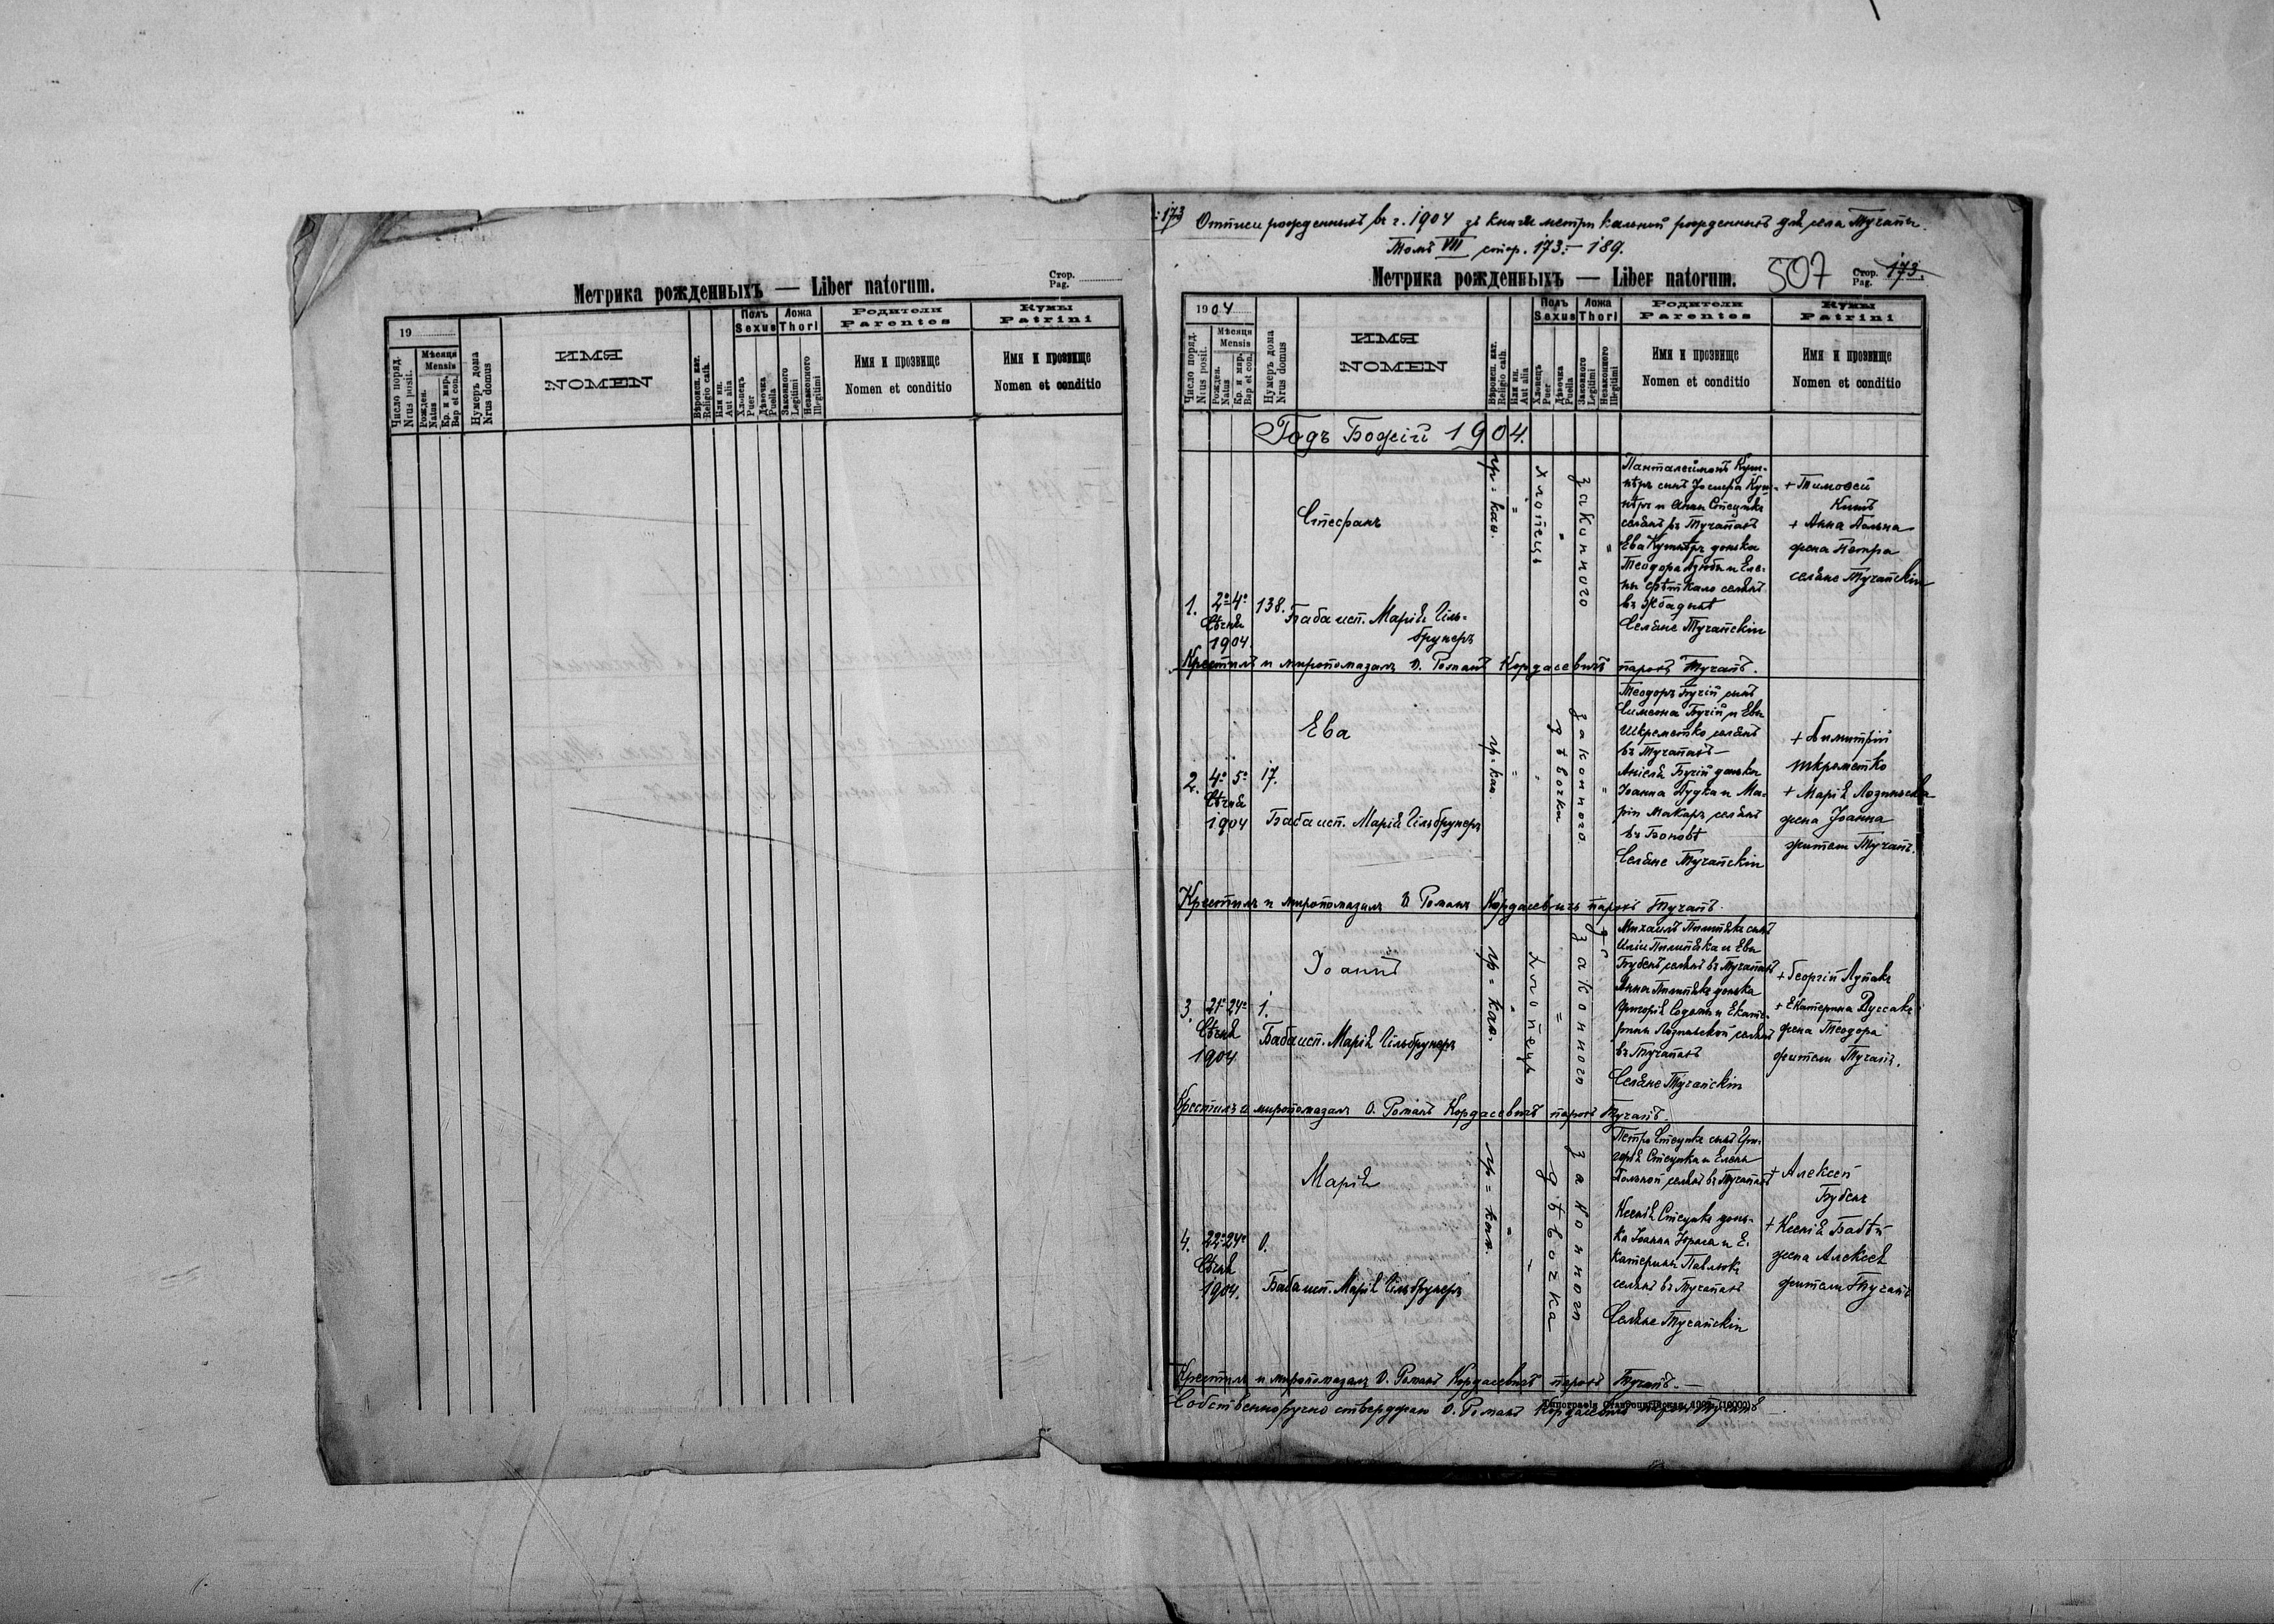 Стор.
Pag.
Метрика рожденныхъ — Liber natorum.
19
Число поряд.
Nrus posit.
Мѣсяця
Mensis
Рожден.
Natus
Кр. и мѵр.
Bap et con.
Нумеръ дома
Nrus domus
ИМЯ
NOMEN
Вѣроисп. кат.
Religio cath.
Или ин.
Aut alia
Полъ
Sexus
Хлопецъ
Puer
Дѣвочка
Puella
Ложа
Thori
Законного
Legitimi
Незаконного
Illegitimi
Родители
Parentes
Имя и прозвище
Nomen et conditio
Кумы
Patrini
Имя и прозвище
Nomen et conditio
173 Отписи рожденныхъ въ г. 1904 зъ книги метрикальной рожденныхъ для села Тучапы.
Томъ VII стор. 173.- 189.
Метрика рожденныхъ — Liber natorum.
507
Стор.
Pag.
173.
1904
Число поряд.
Nrus posit.
Мѣсяця
Mensis
Рожден.
Natus
Кр. и мѵр.
Bap et con.
Нумеръ дома
Nrus domus
ИМЯ
NOMEN
Вѣроисп. кат.
Religio cath.
Или ин.
Aut alia
Полъ
Sexus
Хлопецъ
Puer
Дѣвочка
Puella
Ложа
Thori
Законного
Legitimi
Незаконного
Illegitimi
Родители
Parentes
Имя и прозвище
Nomen et conditio
Кумы
Patrini
Имя и прозвище
Nomen et conditio
Годъ Божій 1904.
1. 2º 4º 138.
Сѣчня
1904
Стефанъ
Баба исп. Марія Гильбрунеръ
гр = каѳ.
хлопецъ
законного
сынъ Іосифа
и Анны Стецика
селянъ въ Тучапахъ
Ева донька
Теодора и Еле-
ны селянъ
въ
Селяне Тучапскіи
+ Тимоѳей
+ Анна
жена Петра
селяне Тучапскіи
Крестилъ и миропомазалъ О. Романъ Кордасевичъ парохъ Тучапъ.
2. 4º 5º 17.
Сѣчня
1904
Ева
Баба исп. Марія Гильбрунеръ
гр = каѳ.
дѣвочка
законного.
Теодоръ Бучій сынъ
Симеона Бучій и Евы
Шкреметко селянъ
въ Тучапахъ —
Бучій донька
Іоанна Дудка и Ма-
ріи Макаръ селянъ
въ Боновѣ
Селяне Тучапскіи
+ Димитрій
Шкреметко
+ Марія Лозинска
жена Іоанна
жители Тучапъ.
Крестилъ и миропомазалъ О. Романъ Кордасевичъ парохъ Тучапъ.
3. 21º 24º 1.
Сѣчня
1904
Іоаннъ
Баба исп. Марія Гильбрунеръ
гр = каѳ.
хлопецъ
законного
Михаилъ сынъ
Иліи и Евы
Бубенъ селянъ въ Тучапахъ
Анна донька
Григорія и Екате-
рины Лозинской селянъ
въ Тучапахъ
Селяне Тучапскіи
+ Георгій Лупакъ
+ Екатерина
жена Теодора
жители Тучапъ.
Крестилъ и миропомазалъ О. Романъ Кордасевичъ парохъ Тучапъ.
4. 22º 24º 0.
Сѣчня
1904.
Марія
Баба исп. Марія Гильбрунеръ
гр = каѳ.
дѣвочка
законного
Петро Стецика сынъ Гри-
горія Стецика и Елены
селянъ въ Тучапахъ
Ксенія Стецика донь-
ка Іоанна и Е-
катерины Павлюкъ
селянъ въ Тучапахъ
Селяне Тучапскіи
+ Алексей
Бубенъ
+ Ксенія Бабѣй
жена Алексея
жители Тучапъ
Крестилъ и миропомазалъ О. Романъ Кордасевичъ парохъ Тучапъ. —
Собственноручно стверджаю О. Романъ Кордасевичъ парохъ Тучапъ